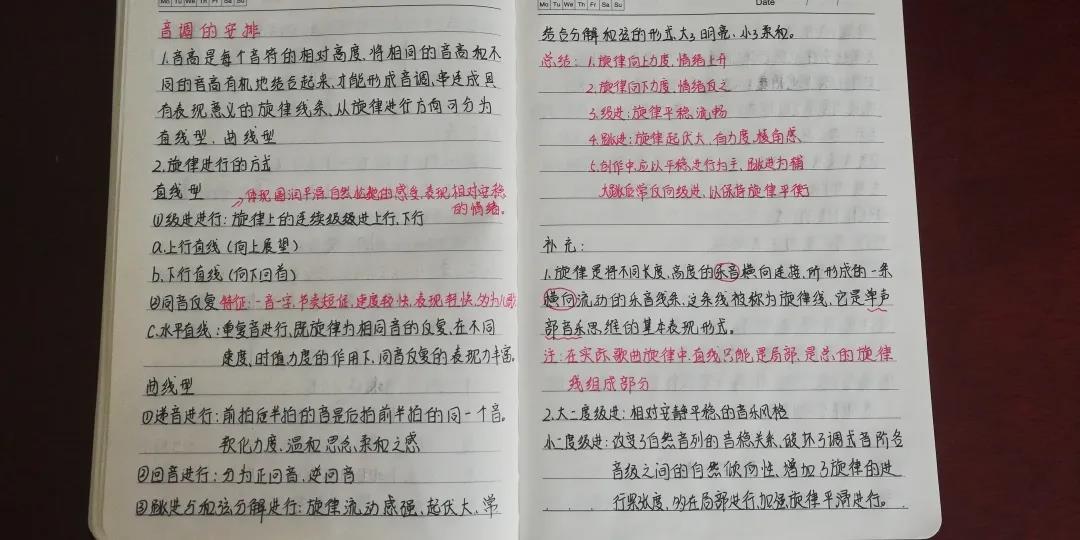 Mo Tu We Th Fr Sa Su
音调的安排
1.音高是每个音符的相对高度,将相同的音高和不
同的音高有机地结合起来,才能形成音调,串连成具
有表现意义的旋律线条,从旋律进行方向可分为
直线型、曲线型
2.旋律进行的方式
直线型 体现圆润平滑,自然松弛的感受,表现相对安稳
的情绪。
①级进进行:旋律上的连续级级进上行、下行
a.上行直线(向上展望)
b.下行直线(向下回首)
②同音反复 特征:一音一字,节奏短促,速度较快,表现轻快,多为儿歌
C.水平直线:重复音进行,既旋律为相同音的反复,在不同
速度,时值力度的作用下,同音反复的表现力丰富。
曲线型
①递音进行:前拍后半拍的音是后拍前半拍的同一个音。
软化力度、温和思念、柔和之感
②回音进行:分为正回音、逆回音
③跳进与和弦分解进行:旋律流动感强、起伏大、常
Mo Tu We Th Fr Sa Su
Date / /
结合分解和弦的形式,大3明亮、小3柔和。
总结:1.旋律向上力度、情绪上升
2.旋律向下力度、情绪反之
3.级进:旋律平稳、流畅
4.跳进:旋律起伏大、有力度、棱角感
5.创作中应以平稳进行为主,跳进为辅
大跳后常反向级进,以保持旋律平衡
补充:
1.旋律是将不同长度、高度的乐音横向连接,所形成的一条
横向流动的乐音线条,这条线被称为旋律线,它是单声
部音乐思维的基本表现形式。
注:在实际歌曲旋律中,直线只能是局部,是总的旋律
线组成部分
2.大二度级进:相对安静平稳的音乐风格
小二度级进:改变了自然音列的音稳关系,破坏了调式音阶各
音级之间的自然倾向性,增加了旋律的进
行紧张度,多在局部进行,加强旋律平滑进行。